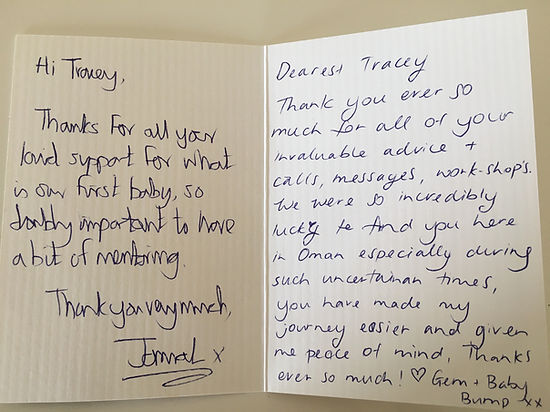 Hi Tracey,
Thanks for all your
kind support for what
is our first baby, so
doubly important to have
a bit of mentoring.
Thank you very much,
x
Dearest Tracey
Thank you ever so
much for all of your
invaluable advice +
calls, messages, work-shop's.
We were so incredibly
lucky to find you here
in Oman especially during
such uncertainan times,
you have made my
journey easier and given
me peace of mind, Thanks
ever so much! ♡ Gem + Baby
Bump xx